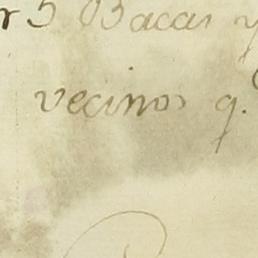 5 Bacas y
vecinos q.